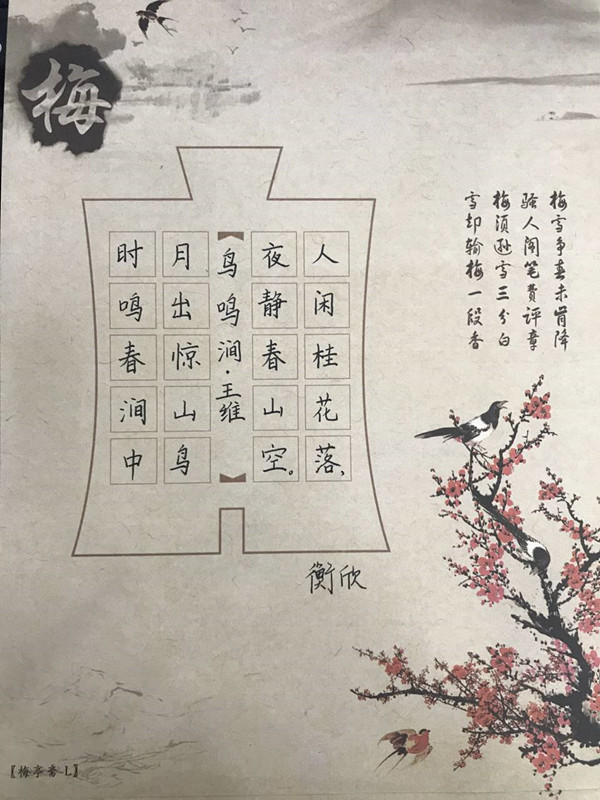 梅
梅雪争春未肯降
骚人阁笔费评章
梅须逊雪三分白
雪却输梅一段香
人闲桂花落、
夜静春山空。
鸟鸣涧·王维
月出惊山鸟
时鸣春涧中
衡欣
〖梅亭 -L〗